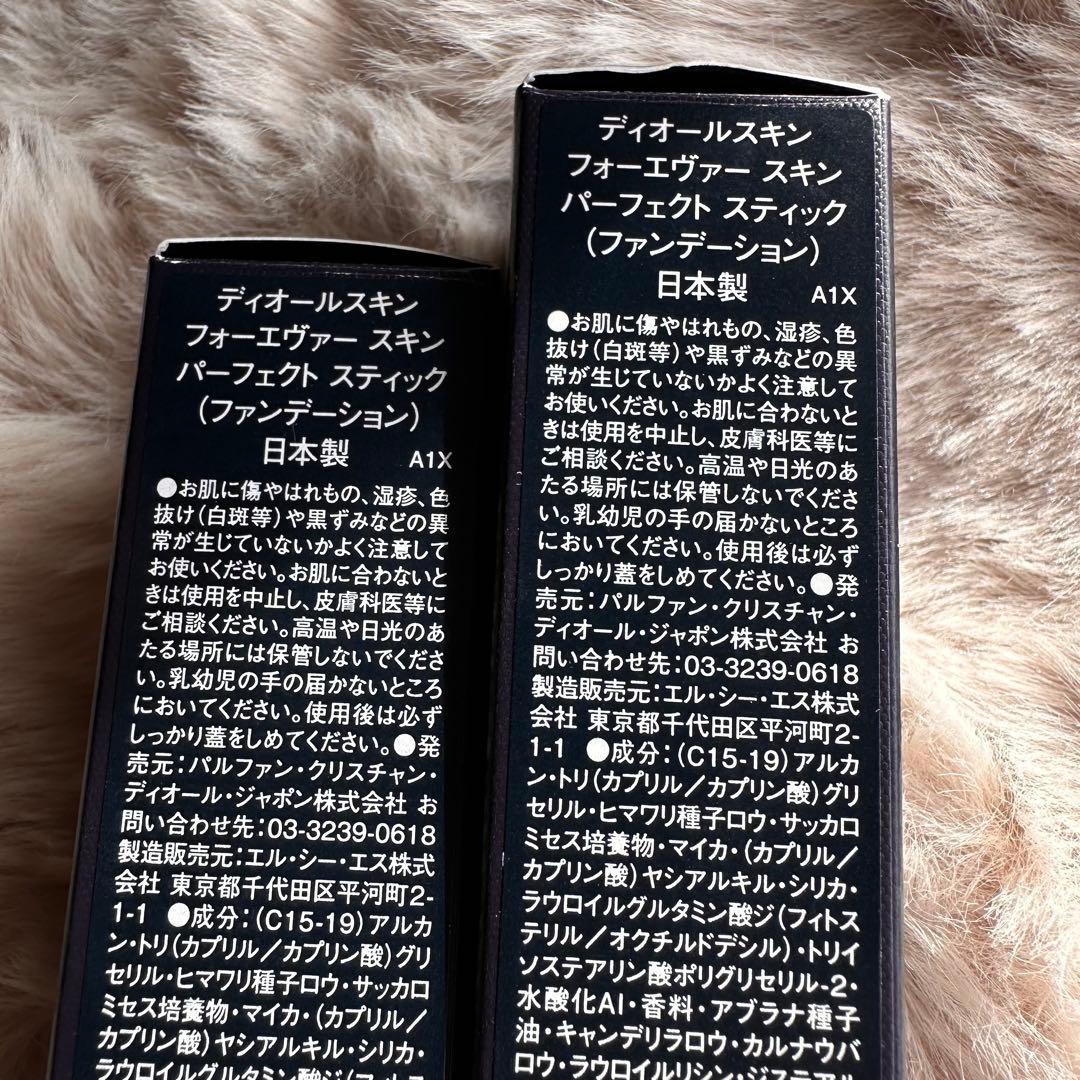 ディオールスキン
フォーエヴァー スキン
パーフェクト スティック
(ファンデーション)
日本製 A1X
●お肌に傷やはれもの、湿疹、色
抜け(白斑等)や黒ずみなどの異
常が生じていないかよく注意して
お使いください。お肌に合わないと
きは使用を中止し、皮膚科医等に
ご相談ください。高温や日光のあ
たる場所には保管しないでくださ
い。乳幼児の手の届かないところ
においてください。使用後は必ず
しっかり蓋をしめてください。●発
売元:パルファン・クリスチャン・
ディオール・ジャポン株式会社 お
問い合わせ先:03-3239-0618
製造販売元:エル・シー・エス株式
会社 東京都千代田区平河町2-
1-1 ●成分:(C15-19)アルカ
ン・トリ(カプリル/カプリン酸)グリ
セリル・ヒマワリ種子ロウ・サッカロ
ミセス培養物・マイカ・(カプリル/
カプリン酸)ヤシアルキル・シリカ・
ラウロイルグルタミン酸ジ(フィトス
ディオールスキン
フォーエヴァー スキン
パーフェクト スティック
(ファンデーション)
日本製 A1X
●お肌に傷やはれもの、湿疹、色
抜け(白斑等)や黒ずみなどの異
常が生じていないかよく注意して
お使いください。お肌に合わないと
きは使用を中止し、皮膚科医等に
ご相談ください。高温や日光のあ
たる場所には保管しないでくださ
い。乳幼児の手の届かないところ
においてください。使用後は必ず
しっかり蓋をしめてください。●発
売元:パルファン・クリスチャン・
ディオール・ジャポン株式会社 お
問い合わせ先:03-3239-0618
製造販売元:エル・シー・エス株式
会社 東京都千代田区平河町2-
1-1 ●成分:(C15-19)アルカ
ン・トリ(カプリル/カプリン酸)グリ
セリル・ヒマワリ種子ロウ・サッカロ
ミセス培養物・マイカ・(カプリル/
カプリン酸)ヤシアルキル・シリカ・
ラウロイルグルタミン酸ジ(フィトス
テリル/オクチルドデシル)・トリイ
ソステアリン酸ポリグリセリル-2・
水酸化Al・香料・アブラナ種子
油・キャンデリラロウ・カルナウバ
ロウ・ラウロイルリシン・ジステアル